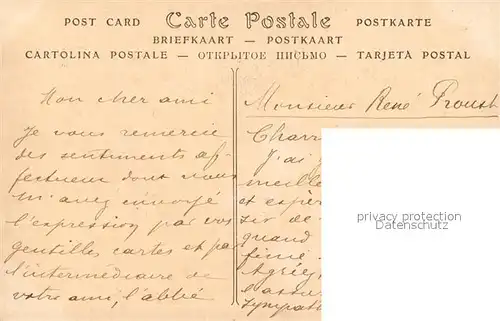 POST CARD Carte Postale POSTKARTE
BRIEFKAART — POSTKAART
CARTOLINA POSTALE — ОТКРЫТОЕ ПИСЬМО — TARJETA POSTAL
Mon cher ami
Je vous remercie
des sentiments af-
fectueux dont vous
m'avez envoyé
l'expression par vos
gentilles cartes et par
l'intermédiaire de
votre ami, l'abbé
Monsieur René Proust
J'ai
et
de
quand
privacy protection
Datenschutz